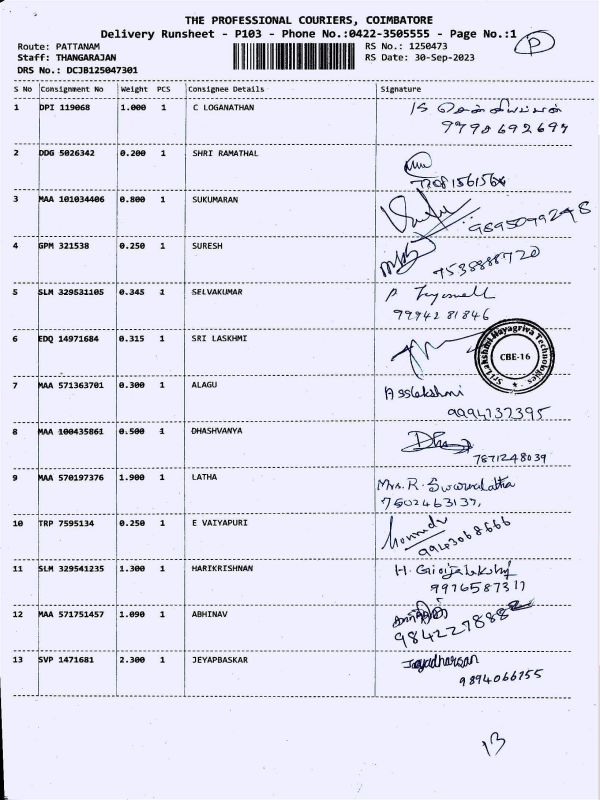 THE PROFESSIONAL COURIERS, COIMBATORE
Delivery Runsheet - P103 - Phone No.:0422-3505555 - Page No.:1
P
Route: PATTANAM
RS No.: 1250473
Staff: THANGARAJAN
RS Date: 30-Sep-2023
DRS No.: DCJB125047301
S No Consignment No Weight PCS Consignee Details Signature
1 DPI 119068 1.000 1 C LOGANATHAN
9790692697
2 DDG 5026342 0.200 1 SHRI RAMATHAL
3 MAA 101034406 0.800 1 SUKUMARAN
9895099248
4 GPM 321538 0.250 1 SURESH
7538888720
5 SLM 329531105 0.345 1 SELVAKUMAR
9994281846
6 EDQ 14971684 0.315 1 SRI LASKHMI
Sri Lakshmi Hayagriva Technologies
CBE-16
7 MAA 571363701 0.300 1 ALAGU
9994737395
8 MAA 100435861 0.500 1 DHASHVANYA
7871248039
9 MAA 570197376 1.900 1 LATHA
Mrs. R. Swarnalatha
7502463137,
10 TRP 7595134 0.250 1 E VAIYAPURI
9943068666
11 SLM 329541235 1.300 1 HARIKRISHNAN
H. Girijalakshmi
9976587317
12 MAA 571751457 1.090 1 ABHINAV
13 SVP 1471681 2.300 1 JEYAPBASKAR
Jayadharsan
9894066755
13